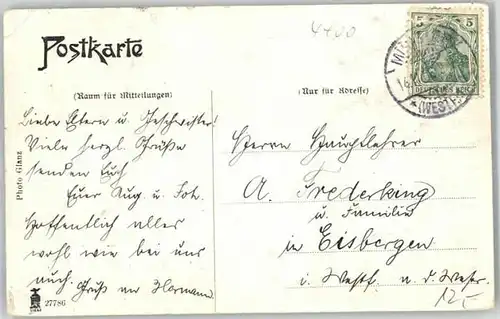 4400
Postkarte
5 5
DEUTSCHES REICH
(WESTF.)
(Raum für Mitteilungen)
(Nur für Adresse)
Liebe Eltern u. Geschwister!
Viele herzl. Grüße
senden Euch
Euer Aug u. Soh.
Hoffentlich alles
wohl wie bei uns
auch. Gruß an Hermann
Herrn Hauptlehrer
A. Frederking
u. Familie
in Eisbergen
i. Westf. a. d. Weser.
12,-
Photo Glanz
27786